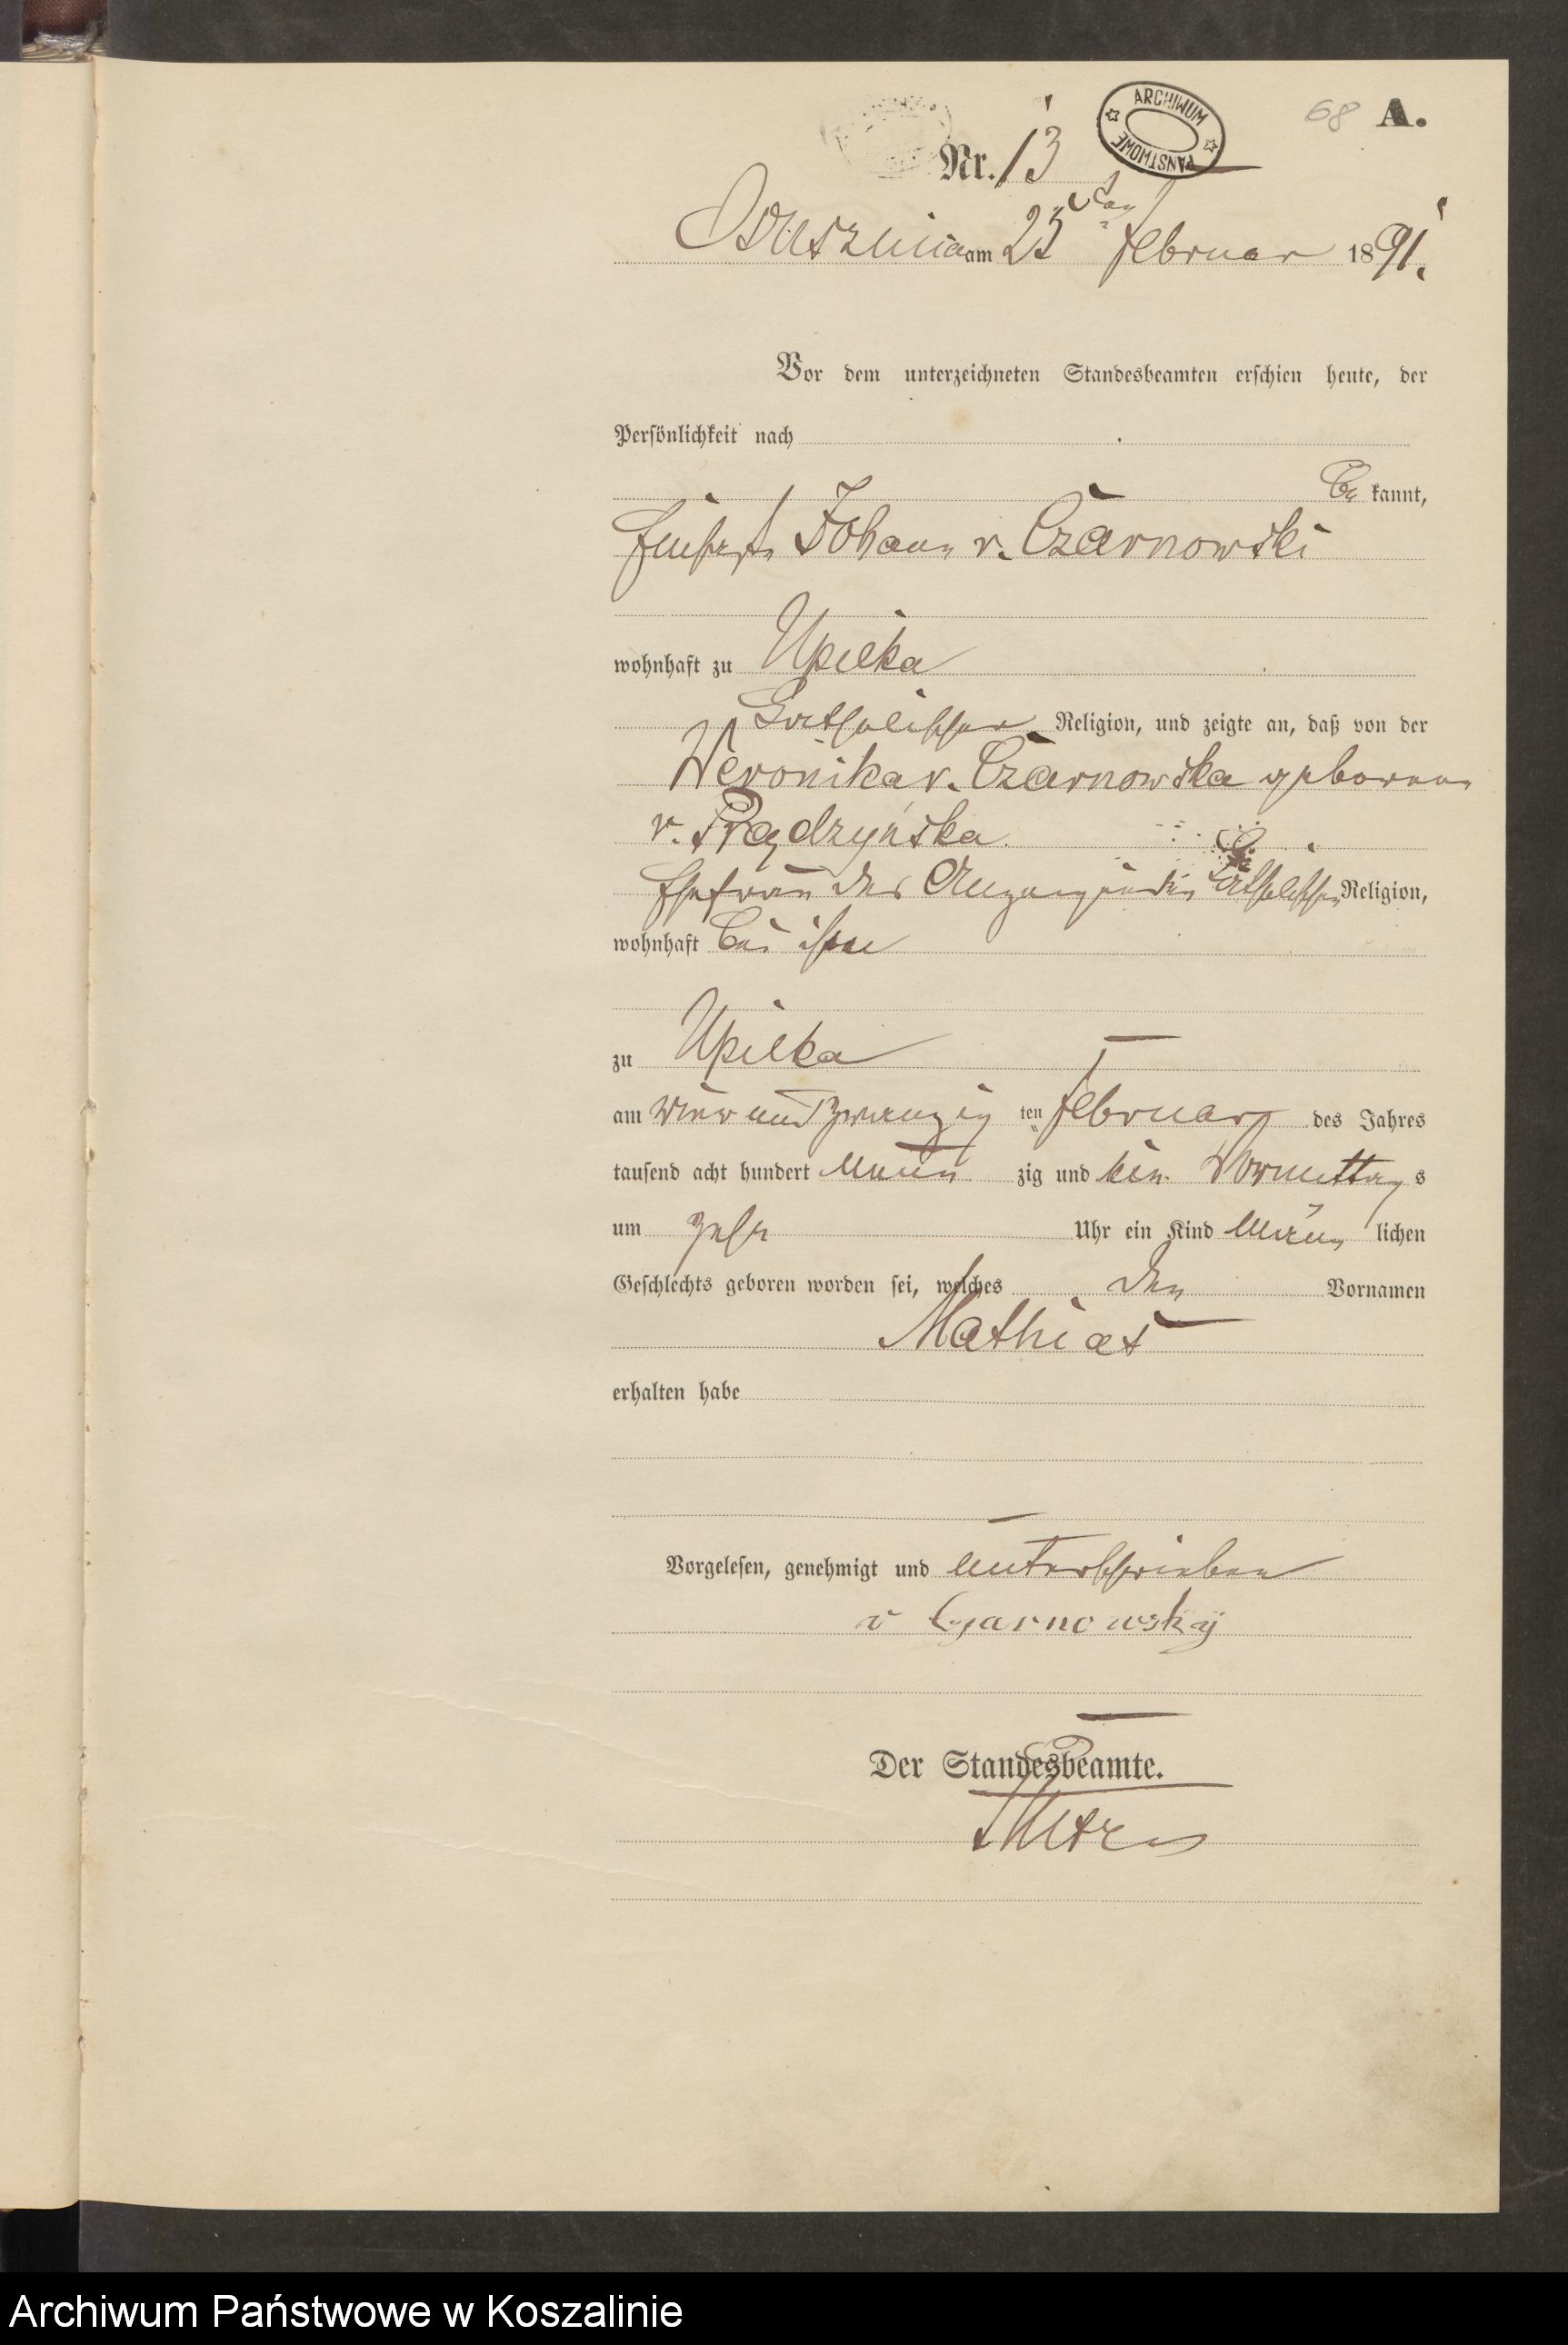 68 A.
ARCHIWUM PAŃSTWOWE
Nr. 13
am 25ten Februar 1891.
Vor dem unterzeichneten Standesbeamten erschien heute, der
Persönlichkeit nach
be kannt,
Johann v. Czarnowski
wohnhaft zu Upilka
katholischer Religion, und zeigte an, daß von der
Veronika v. Czarnowska geborenen
v. Prądzyńska
Ehefrau des Anzeigenden katholischer Religion,
wohnhaft bei ihm
zu Upilka
am vier und zwanzig ten Februar des Jahres
tausend acht hundert neun zig und ein Vormittag s
um zehn Uhr ein Kind männ lichen
Geschlechts geboren worden sei, welches den Vornamen
Mathias
erhalten habe
Vorgelesen, genehmigt und unterschrieben
v Czarnowsky
Der Standesbeamte.
Archiwum Państwowe w Koszalinie